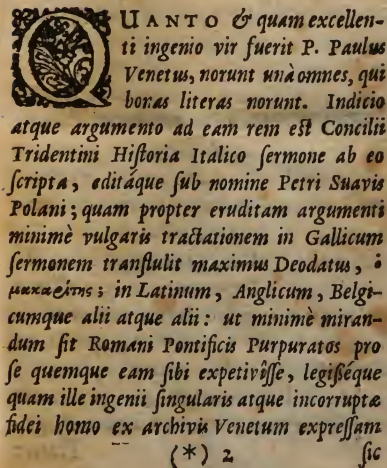 QUANTO & quam excellen-
ti ingenio vir fuerit P. Paulus
Venetus, norunt unà omnes, qui
bonas literas norunt. Indicio
atque argumento ad eam rem eſt Concilii
Tridentini Hiſtoria Italico ſermone ab eo
ſcripta, editáque ſub nomine Petri Suavis
Polani; quam propter eruditam argumenti
minimè vulgaris tractationem in Gallicum
ſermonem tranſtulit maximus Deodatus, ὁ
μακαρίτης; in Latinum, Anglicum, Belgi-
cumque alii atque alii: ut minimè miran-
dum ſit Romani Pontificis Purpuratos pro
ſe quemque eam ſibi expetivîſſe, legiſſéque
quam ille ingenii ſingularis atque incorruptæ
fidei homo ex archivis Venetum expreſſam
(*) 2 ſic